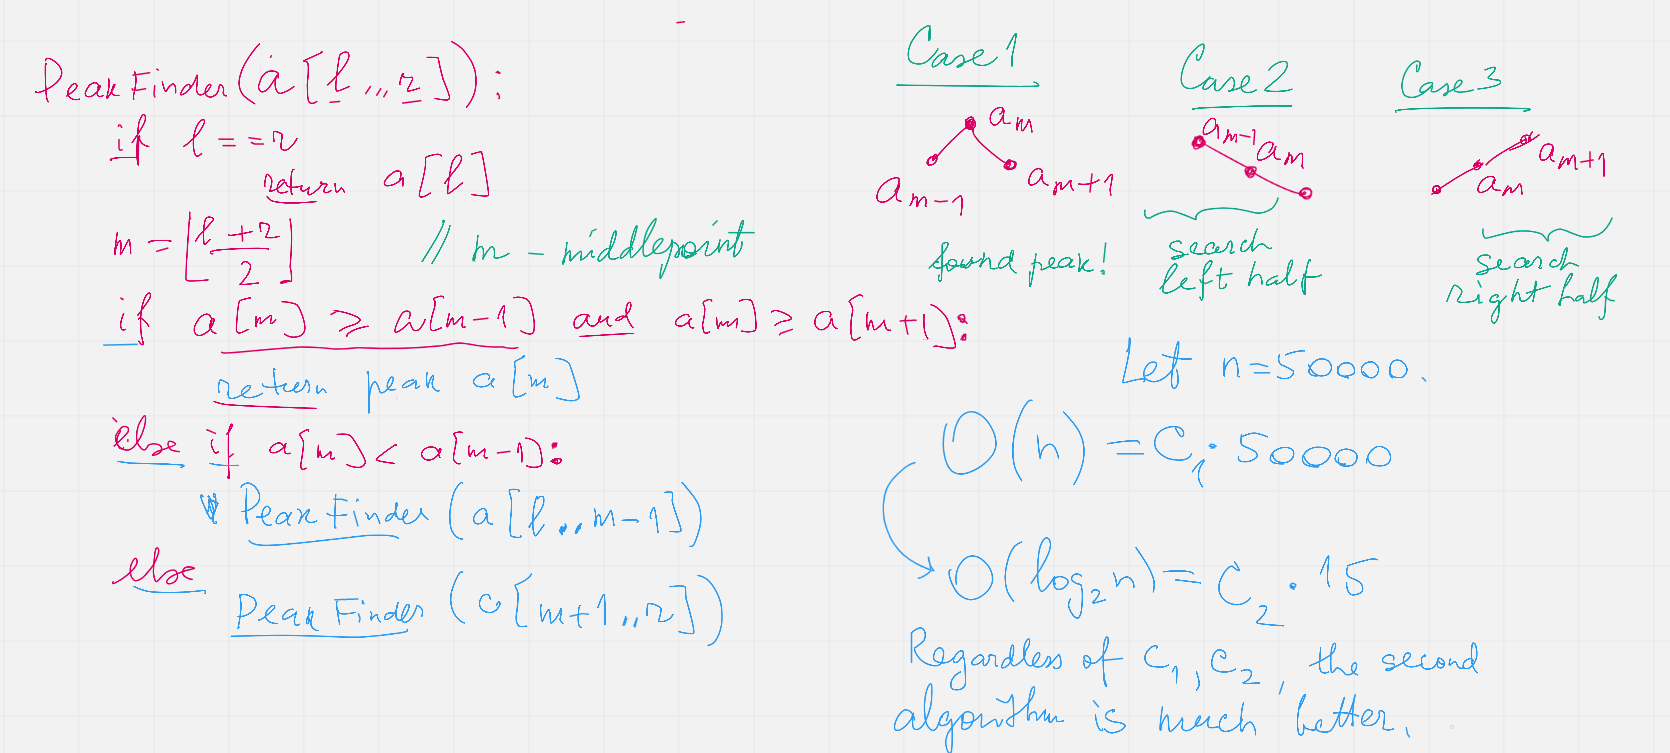 PeakFinder(a[l..r]):
if l == r
return a[l]
m = ⌊(l + r)/2⌋ // m – middlepoint
if a[m] ≥ a[m-1] and a[m] ≥ a[m+1]:
return peak a[m]
else if a[m] < a[m-1]:
PeakFinder (a[l..m-1])
else
PeakFinder (a[m+1..r])
Case 1
a_m
a_{m-1} a_{m+1}
found peak!
Case 2
a_{m-1} a_m
search
left half
Case 3
a_{m+1}
a_m
search
right half
Let n = 50000.
O(n) = C_1 · 50000
O(log_2 n) = C_2 · 15
Regardless of C_1, C_2, the second
algorithm is much better.